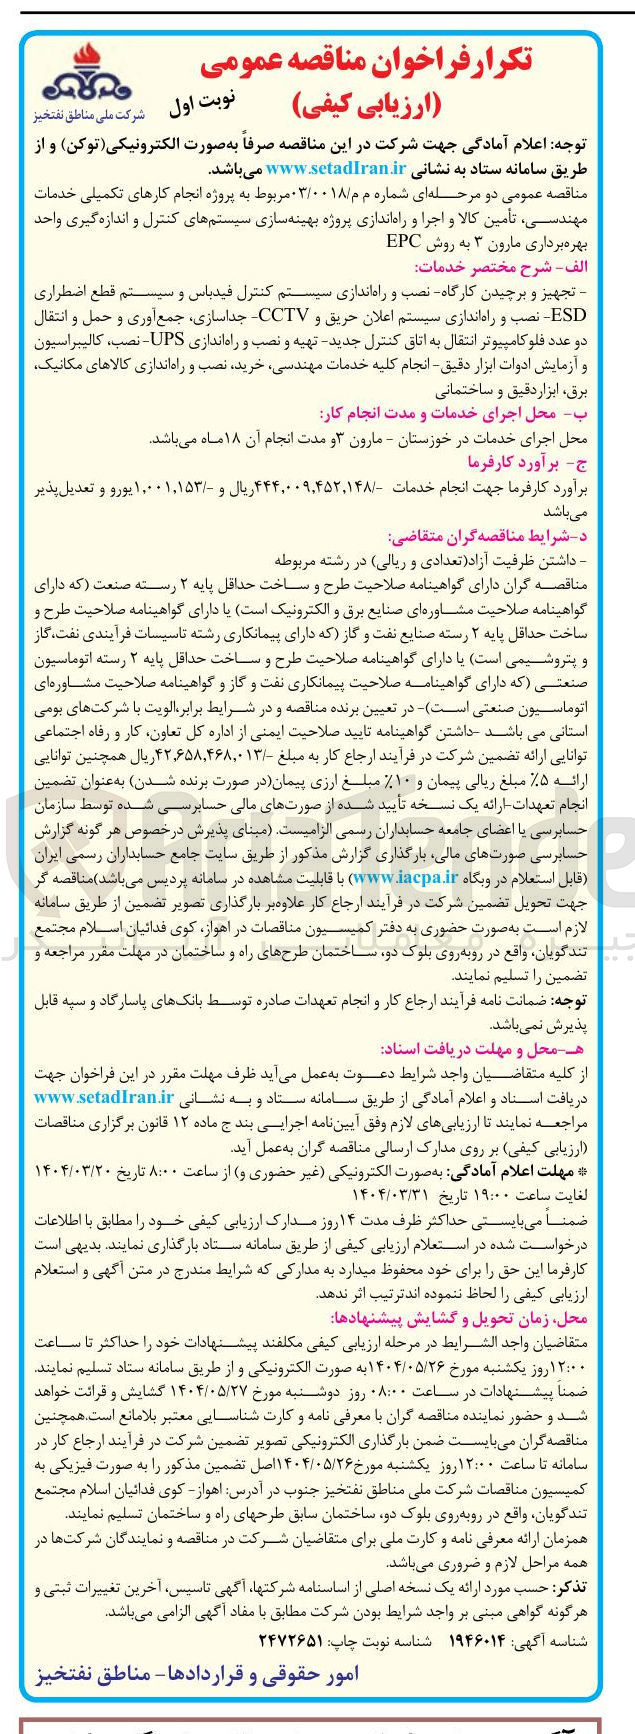 تکرارفراخوان مناقصه عمومی
(ارزیابی کیفی)
نوبت اول
شرکت ملی مناطق نفتخیز
توجه: اعلام آمادگی جهت شرکت در این مناقصه صرفاً به‌صورت الکترونیکی(توکن) و از
طریق سامانه ستاد به نشانی www.setadIran.ir می‌باشد.
مناقصه عمومی دو مرحله‌ای شماره م م/۰۳/۰۰۱۸مربوط به پروژه انجام کارهای تکمیلی خدمات
مهندسی، تأمین کالا و اجرا و راه‌اندازی پروژه بهینه‌سازی سیستم‌های کنترل و اندازه‌گیری واحد
بهره‌برداری مارون ۳ به روش EPC
الف- شرح مختصر خدمات:
- تجهیز و برچیدن کارگاه- نصب و راه‌اندازی سیستم کنترل فیدباس و سیستم قطع اضطراری
ESD- نصب و راه‌اندازی سیستم اعلان حریق و CCTV- جداسازی، جمع‌آوری و حمل و انتقال
دو عدد فلوکامپیوتر انتقال به اتاق کنترل جدید- تهیه و نصب و راه‌اندازی UPS- نصب، کالیبراسیون
و آزمایش ادوات ابزار دقیق- انجام کلیه خدمات مهندسی، خرید، نصب و راه‌اندازی کالاهای مکانیک،
برق، ابزاردقیق و ساختمانی
ب- محل اجرای خدمات و مدت انجام کار:
محل اجرای خدمات در خوزستان - مارون ۳و مدت انجام آن ۱۸ماه می‌باشد.
ج- برآورد کارفرما
برآورد کارفرما جهت انجام خدمات -/۴۴۴,۰۰۹,۴۵۲,۱۴۸ریال و -/۱,۰۰۱,۱۵۳یورو و تعدیل‌پذیر
می‌باشد
د-شرایط مناقصه‌گران متقاضی:
- داشتن ظرفیت آزاد(تعدادی و ریالی) در رشته مربوطه
مناقصه گران دارای گواهینامه صلاحیت طرح و ساخت حداقل پایه ۲ رسته صنعت (که دارای
گواهینامه صلاحیت مشاوره‌ای صنایع برق و الکترونیک است) یا دارای گواهینامه صلاحیت طرح و
ساخت حداقل پایه ۲ رسته صنایع نفت و گاز (که دارای پیمانکاری رشته تاسیسات فرآیندی نفت،گاز
و پتروشیمی است) یا دارای گواهینامه صلاحیت طرح و ساخت حداقل پایه ۲ رسته اتوماسیون
صنعتی (که دارای گواهینامه صلاحیت پیمانکاری نفت و گاز و گواهینامه صلاحیت مشاوره‌ای
اتوماسیون صنعتی است)- در تعیین برنده مناقصه و در شرایط برابر،الویت با شرکت‌های بومی
استانی می باشد -داشتن گواهینامه تایید صلاحیت ایمنی از اداره کل تعاون، کار و رفاه اجتماعی
توانایی ارائه تضمین شرکت در فرآیند ارجاع کار به مبلغ -/۴۲,۶۵۸,۴۶۸,۰۱۳ریال همچنین توانایی
ارائه ۵٪ مبلغ ریالی پیمان و ۱۰٪ مبلغ ارزی پیمان(در صورت برنده شدن) به‌عنوان تضمین
انجام تعهدات-ارائه یک نسخه تأیید شده از صورت‌های مالی حسابرسی شده توسط سازمان
حسابرسی یا اعضای جامعه حسابداران رسمی الزامیست. (مبنای پذیرش درخصوص هر گونه گزارش
حسابرسی صورت‌های مالی، بارگذاری گزارش مذکور از طریق سایت جامع حسابداران رسمی ایران
(قابل استعلام در وبگاه www.iacpa.ir) با قابلیت مشاهده در سامانه پردیس می‌باشد)مناقصه گر
جهت تحویل تضمین شرکت در فرآیند ارجاع کار علاوه‌بر بارگذاری تصویر تضمین از طریق سامانه
لازم است به‌صورت حضوری به دفتر کمیسیون مناقصات در اهواز، کوی فدائیان اسلام مجتمع
تندگویان، واقع در روبه‌روی بلوک دو، ساختمان طرح‌های راه و ساختمان در مهلت مقرر مراجعه و
تضمین را تسلیم نمایند.
توجه: ضمانت نامه فرآیند ارجاع کار و انجام تعهدات صادره توسط بانک‌های پاسارگاد و سپه قابل
پذیرش نمی‌باشد.
هـ-محل و مهلت دریافت اسناد:
از کلیه متقاضیان واجد شرایط دعوت به‌عمل می‌آید ظرف مهلت مقرر در این فراخوان جهت
دریافت اسناد و اعلام آمادگی از طریق سامانه ستاد و به نشانی www.setadIran.ir
مراجعه نمایند تا ارزیابی‌های لازم وفق آیین‌نامه اجرایی بند ج ماده ۱۲ قانون برگزاری مناقصات
(ارزیابی کیفی) بر روی مدارک ارسالی مناقصه گران به‌عمل آید.
* مهلت اعلام آمادگی: به‌صورت الکترونیکی (غیر حضوری و) از ساعت ۸:۰۰ تاریخ ۱۴۰۴/۰۳/۲۰
لغایت ساعت ۱۹:۰۰ تاریخ ۱۴۰۴/۰۳/۳۱
ضمناً می‌بایستی حداکثر ظرف مدت ۱۴روز مدارک ارزیابی کیفی خود را مطابق با اطلاعات
درخواست شده در استعلام ارزیابی کیفی از طریق سامانه ستاد بارگذاری نمایند. بدیهی است
کارفرما این حق را برای خود محفوظ میدارد به مدارکی که شرایط مندرج در متن آگهی و استعلام
ارزیابی کیفی را لحاظ ننموده اندترتیب اثر ندهد.
محل، زمان تحویل و گشایش پیشنهادها:
متقاضیان واجد الشرایط در مرحله ارزیابی کیفی مکلفند پیشنهادات خود را حداکثر تا ساعت
۱۲:۰۰روز یکشنبه مورخ ۱۴۰۴/۰۵/۲۶به صورت الکترونیکی و از طریق سامانه ستاد تسلیم نمایند.
ضمناً پیشنهادات در ساعت ۰۸:۰۰ روز دوشنبه مورخ ۱۴۰۴/۰۵/۲۷ گشایش و قرائت خواهد
شد و حضور نماینده مناقصه گران با معرفی نامه و کارت شناسایی معتبر بلامانع است.همچنین
مناقصه‌گران می‌بایست ضمن بارگذاری الکترونیکی تصویر تضمین شرکت در فرآیند ارجاع کار در
سامانه تا ساعت ۱۲:۰۰روز یکشنبه مورخ۱۴۰۴/۰۵/۲۶اصل تضمین مذکور را به صورت فیزیکی به
کمیسیون مناقصات شرکت ملی مناطق نفتخیز جنوب در آدرس: اهواز- کوی فدائیان اسلام مجتمع
تندگویان، واقع در روبه‌روی بلوک دو، ساختمان سابق طرحهای راه و ساختمان تسلیم نمایند.
همزمان ارائه معرفی نامه و کارت ملی برای متقاضیان شرکت در مناقصه و نمایندگان شرکت‌ها در
همه مراحل لازم و ضروری می‌باشد.
تذکر: حسب مورد ارائه یک نسخه اصلی از اساسنامه شرکتها، آگهی تاسیس، آخرین تغییرات ثبتی و
هرگونه گواهی مبنی بر واجد شرایط بودن شرکت مطابق با مفاد آگهی الزامی می‌باشد.
شناسه آگهی: ۱۹۴۶۰۱۴ شناسه نوبت چاپ: ۲۴۷۲۶۵۱
امور حقوقی و قراردادها- مناطق نفتخیز